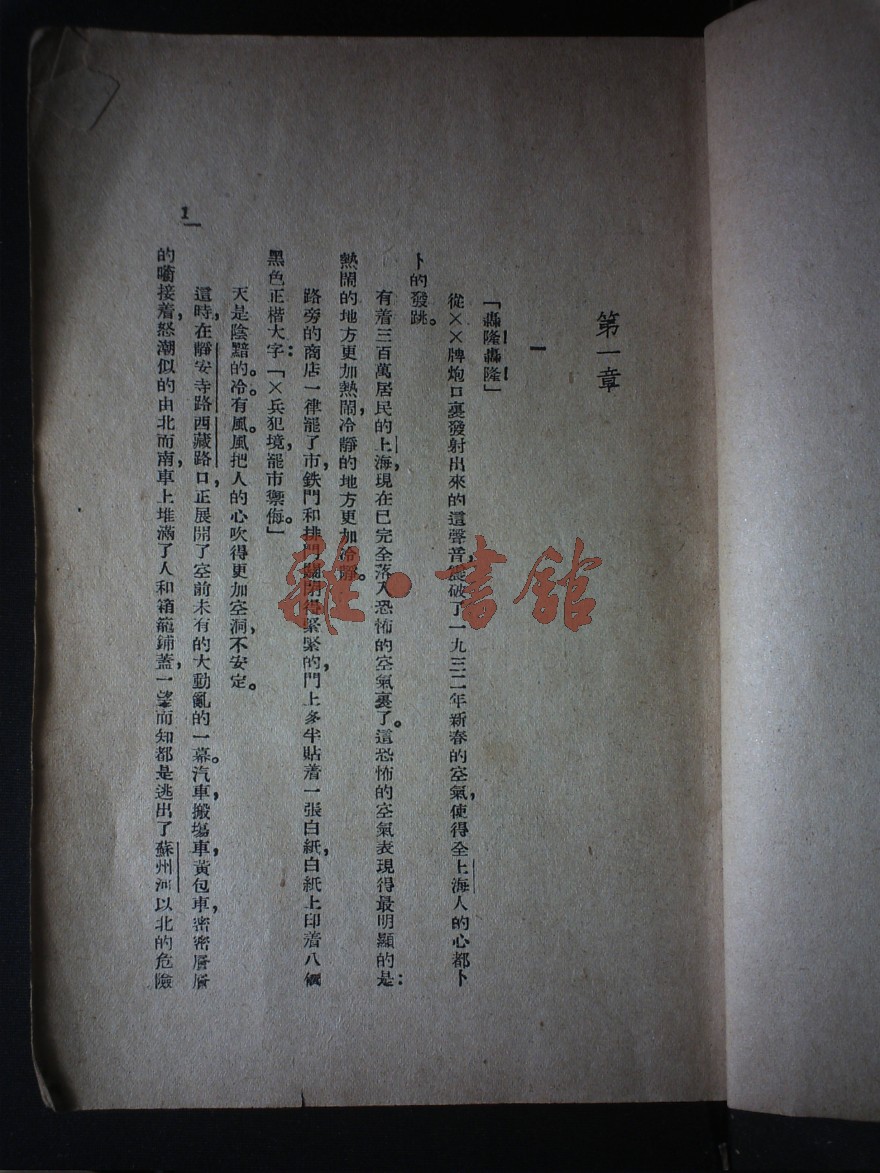 第一章
一
「轟隆轟隆」
從××牌炮口裏發射出來的這聲音，震破了一九三二年新春的空氣，使得全上海人的心都卜
卜的發跳。
有着三百萬居民的上海，現在已完全落入恐怖的空氣裏了。這恐怖的空氣表現得最明顯的是：
熱鬧的地方更加熱鬧，冷靜的地方更加冷靜。
路旁的商店一律罷了市，鉄門和排門關閉得緊緊的，門上多半貼着一張白紙，白紙上印着八個
黑色正楷大字：「×兵犯境，罷市禦侮。」
天是陰黯的。冷。有風。風把人的心吹得更加空洞，不安定。
這時，在靜安寺路西藏路口，正展開了空前未有的大動亂的一幕。汽車，搬塲車，黃包車，密密層層
的啣接着，怒潮似的由北而南，車上堆滿了人和箱籠鋪蓋，一望而知都是逃出了蘇州河以北的危險
1
雜·書館